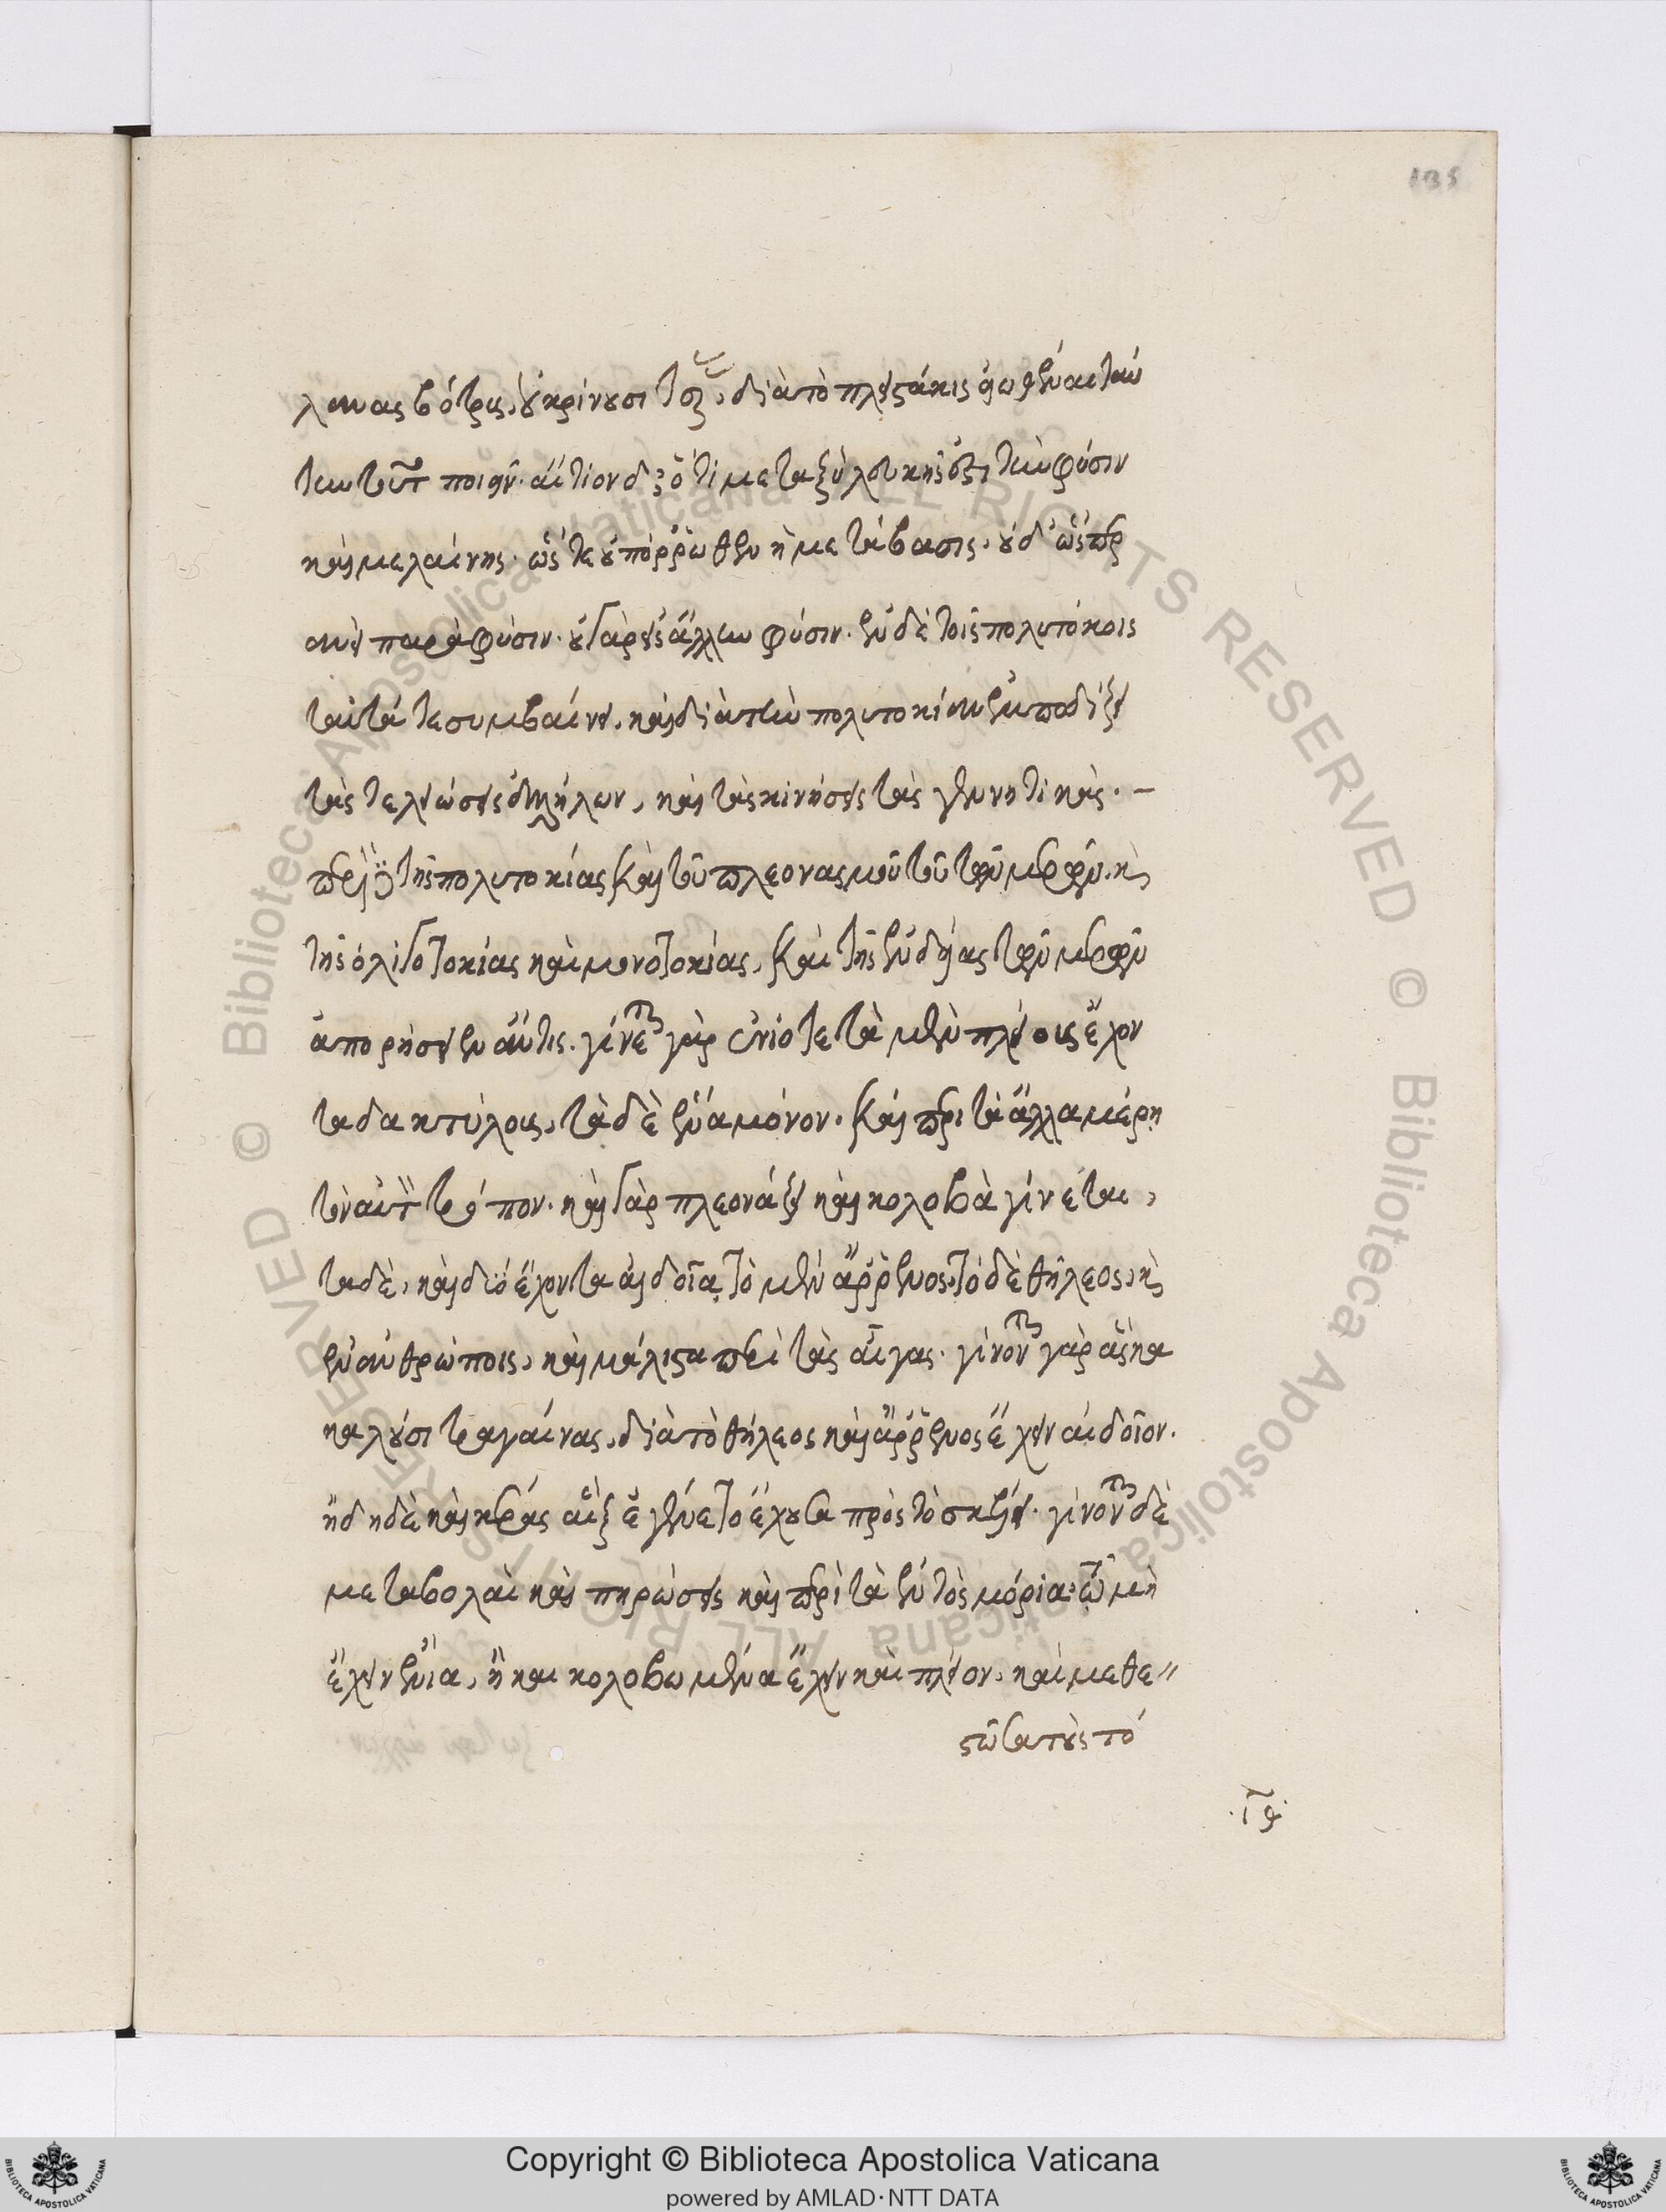 135
λαινας βότρυς, οὐ κρίνουσι τέρας, διὰ τὸ πλειστάκις εἰωθέναι ταύ
την τοῦτο ποιεῖν. αἴτιον δ' ὅτι μεταξὺ λευκῆς ἐστι τὴν φύσιν
καὶ μελαίνης. ὥστε οὐ πόρρωθεν ἡ μετάβασις. οὐδ' ὥσπερ
ανεὶ παρὰ φύσιν. οὐ γὰρ εἰς ἄλλην φύσιν. ἐν δὲ τοῖς πολυτόκοις
ταῦτά τε συμβαίνει, καὶ διὰ τὴν πολυτοκίαν ἐμποδίζειν
τὰς τελειώσεις ἀλλήλων, καὶ τὰς κινήσεις τὰς γεννητικάς. –
περὶ δὲ τῆς πολυτοκίας καὶ τοῦ πλεονασμοῦ τοῦ τῶν μερῶν. καὶ
τῆς ὀλιγοτοκίας καὶ μονοτοκίας, καὶ τῆς ἐνδείας τῶν μερῶν
ἀπορήσειεν ἄν τις. γίνεται γὰρ ἐνίοτε τὰ μὲν πλείους ἔχον
τα δακτύλους, τὰ δὲ ἕνα μόνον. καὶ περὶ τὰ ἄλλα μέρη
τὸν αὐτὸν τρόπον. καὶ γὰρ πλεονάζει καὶ κολοβὰ γίνεται,
τὰ δὲ, καὶ δύο ἔχοντα αἰδοῖα, τὸ μὲν ἄρρενος, τὸ δὲ θήλεος, καὶ
ἐν ἀνθρώποις, καὶ μάλιστα περὶ τὰς αἶγας. γίνονται γὰρ ἃς κα
καλοῦσι τραγαίνας, διὰ τὸ θήλεος καὶ ἄρρενος ἔχειν αἰδοῖον.
ἤδη δὲ καὶ κέρας αἲξ ἐγένετο ἔχουσα πρὸς τὸ σκέλει. γίνονται δὲ
μεταβολαὶ καὶ πηρώσεις καὶ περὶ τὰ ἐντὸς μόρια, τῷ μὴ
ἔχειν ἔνια, ἢ καὶ κολοβωμένα ἔχειν καὶ πλείον, καὶ μεθε〃
στῶτα τοὺς τό